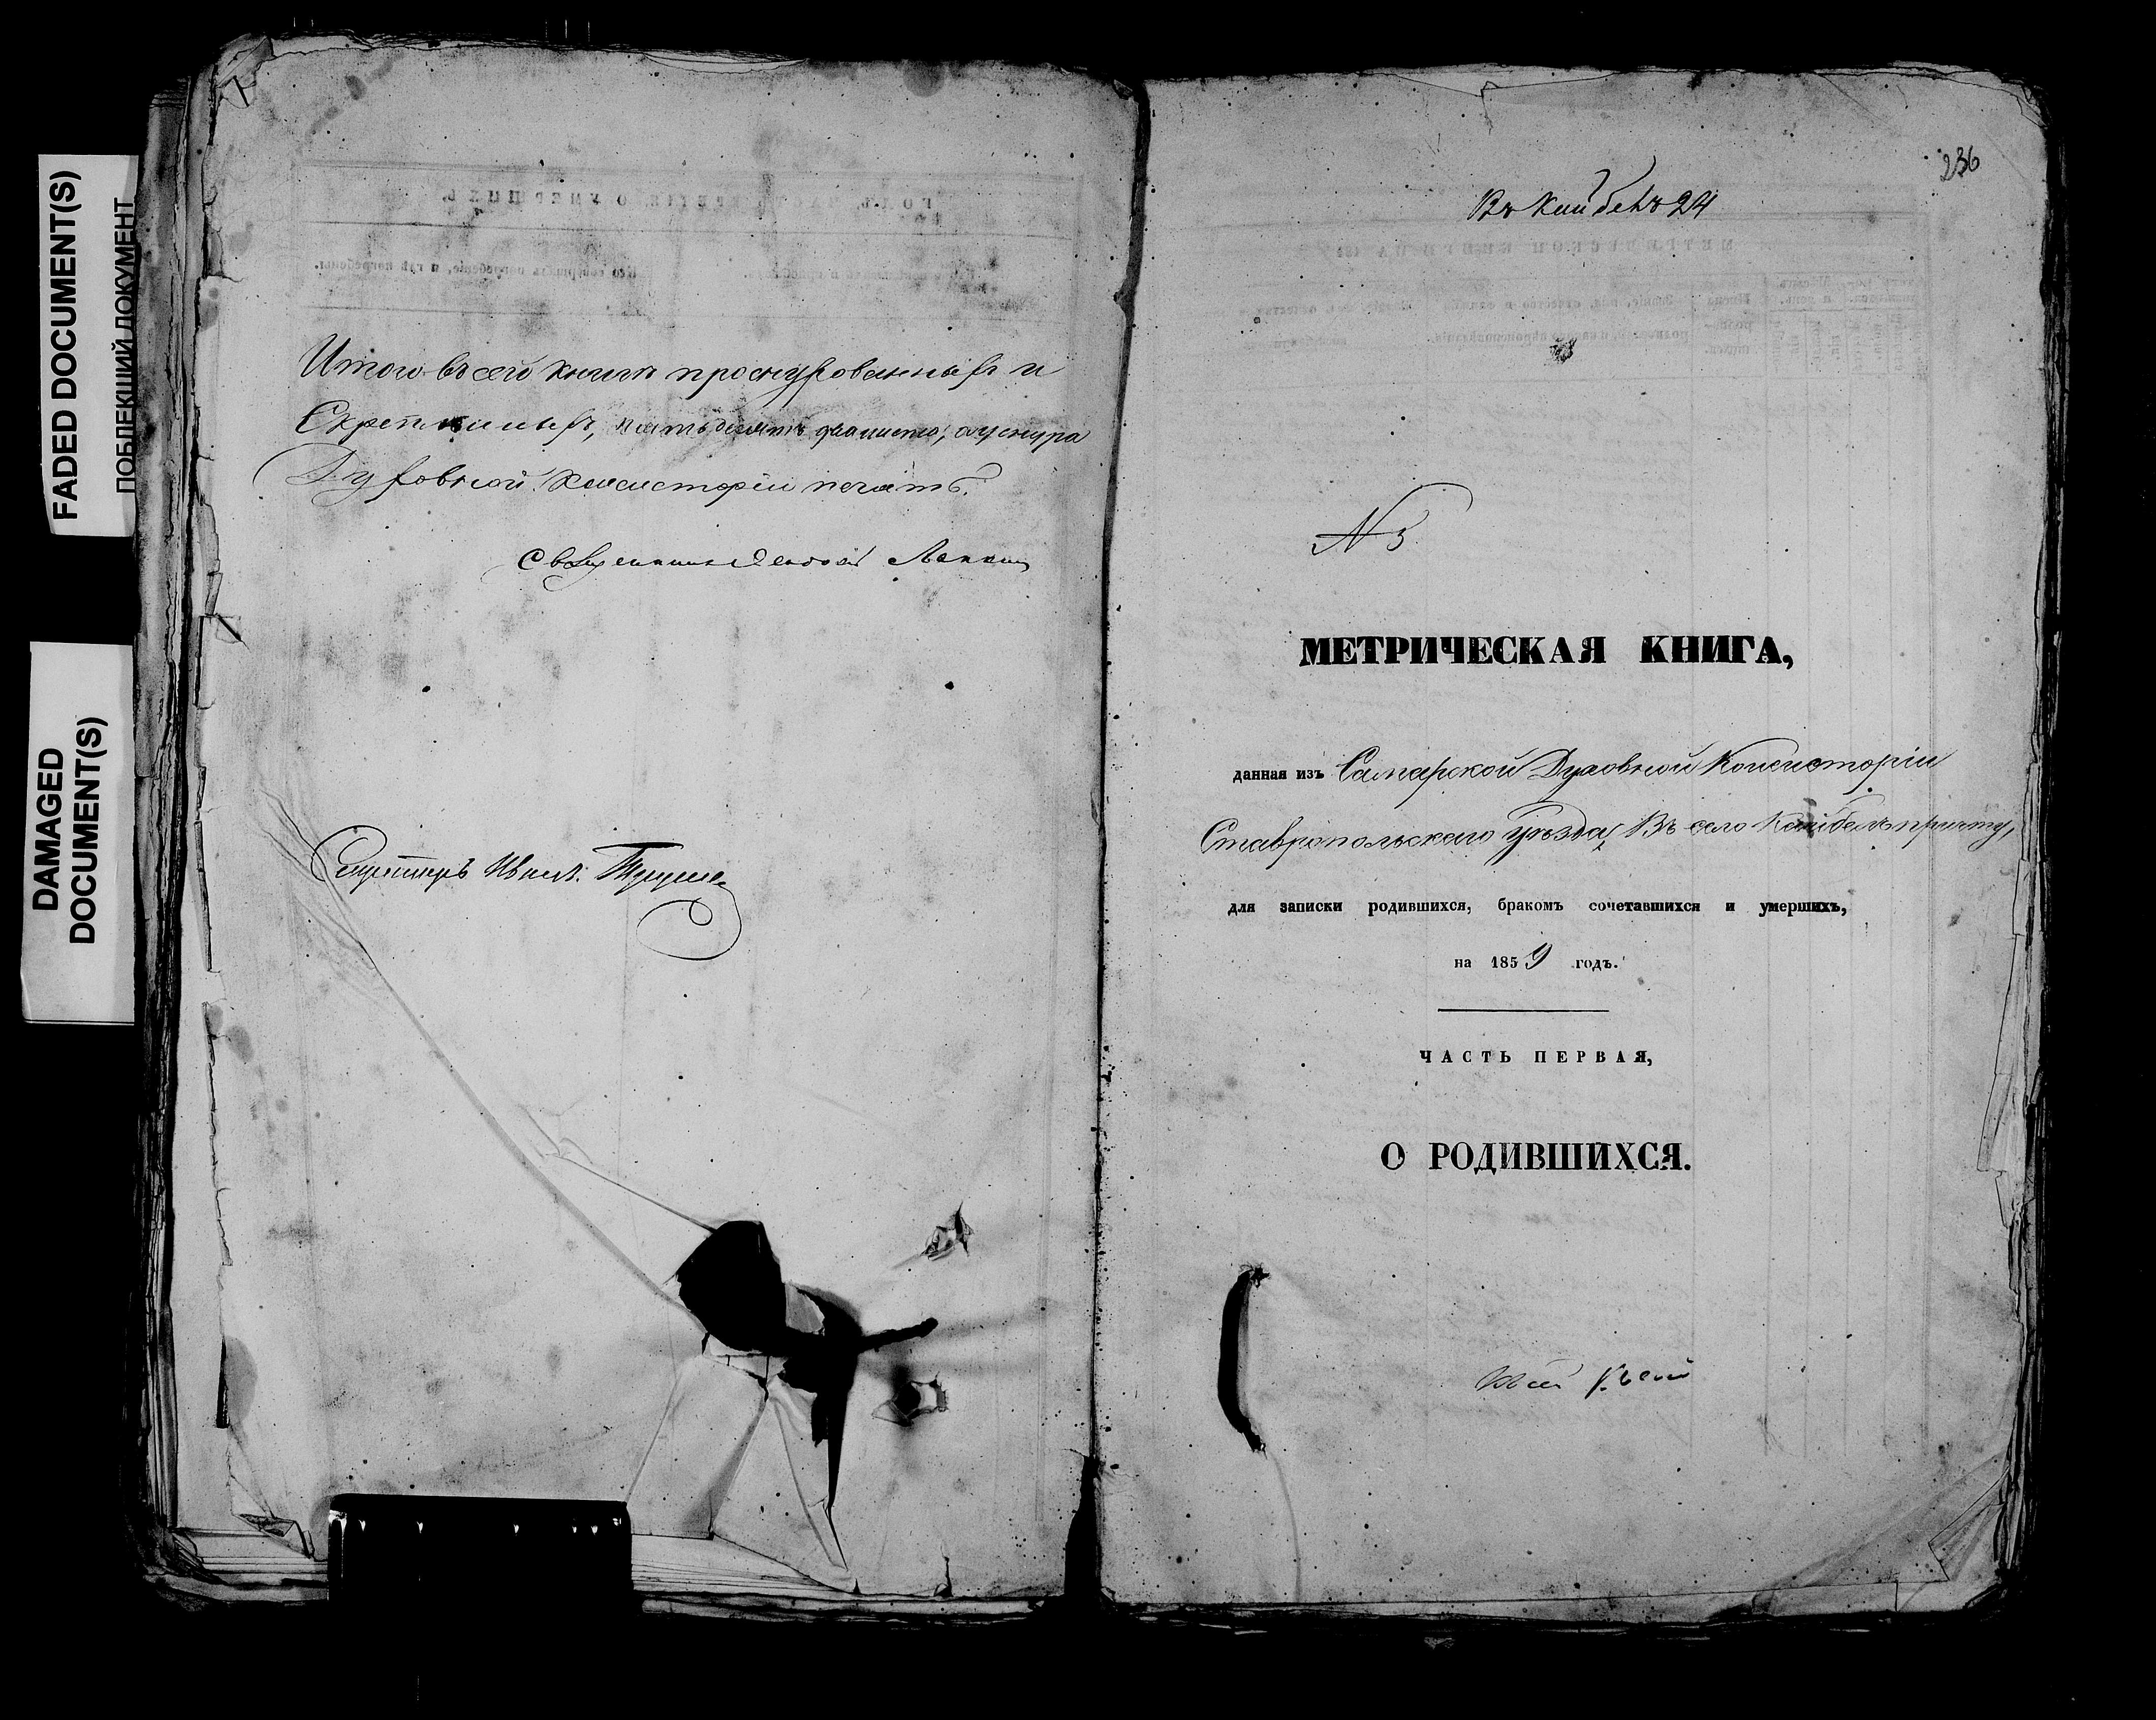 FADED DOCUMENT(S)
ПОБЛЕКШИЙ ДОКУМЕНТ
DAMAGED
DOCUMENT(S)
Итого въ сей книгѣ прошнурованныхъ и
Скрѣпленныхъ, пятьдесятъ два листа, а у шнура
Духовной Консисторіи печать.
Священникъ
Секретарь Иванъ
236
Въ Кайбелъ 24
N 5
МЕТРИЧЕСКАЯ КНИГА,
данная изъ Самарской Духовной Консисторіи
Ставропольскаго уѣзда, Въ село Кайбелъ причту,
для записки родившихся, бракомъ сочетавшихся и умершихъ,
на 1859 годъ.
ЧАСТЬ ПЕРВАЯ,
О РОДИВШИХСЯ.